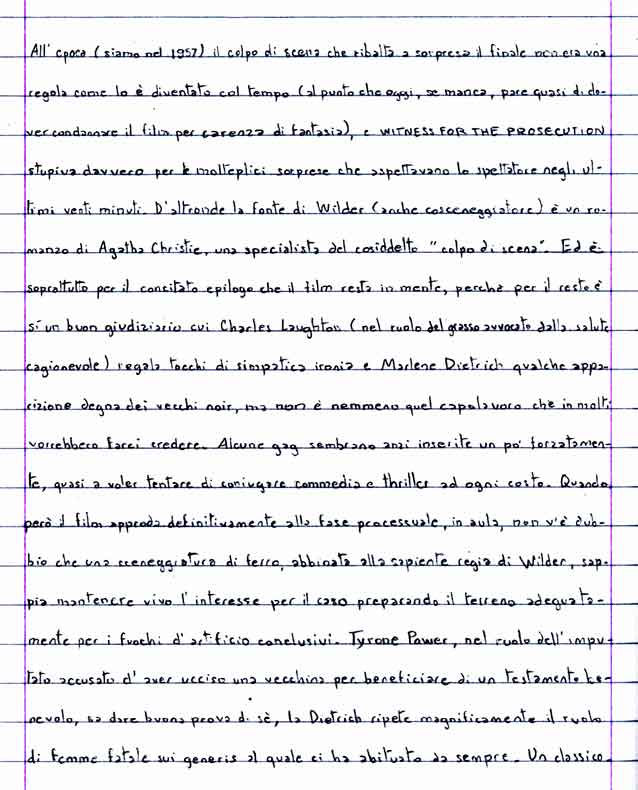 All'epoca (siamo nel 1957) il colpo di scena che ribalta a sorpresa il finale non era una
regola come lo è diventato col tempo (al punto che oggi, se manca, pare quasi di do-
ver condannare il film per carenza di fantasia), e WITNESS FOR THE PROSECUTION
stupiva davvero per le molteplici sorprese che aspettavano lo spettatore negli ul-
timi venti minuti. D'altronde la fonte di Wilder (anche cosceneggiatore) è un ro-
manzo di Agatha Christie, una specialista del cosiddetto "colpo di scena". Ed è
soprattutto per il concitato epilogo che il film resta in mente, perché per il resto è
sì un buon giudiziario cui Charles Laughton (nel ruolo del grasso avvocato dalla salute
cagionevole) regala tocchi di simpatica ironia e Marlene Dietrich qualche appa-
rizione degna dei vecchi noir, ma non è nemmeno quel capolavoro che in molti
vorrebbero farci credere. Alcune gag sembrano anzi inserite un po' forzatamen-
te, quasi a voler tentare di coniugare commedia e thriller ad ogni costo. Quando
però il film approda definitivamente alla fase processuale, in aula, non v'è dub-
bio che una sceneggiatura di ferro, abbinata alla sapiente regia di Wilder, sap-
pia mantenere vivo l'interesse per il caso preparando il terreno adeguata-
mente per i fuochi d'artificio conclusivi. Tyrone Power, nel ruolo dell'impu-
tato accusato d'aver ucciso una vecchina per beneficiare di un testamento be-
nevolo, sa dare buona prova di sè, la Dietrich ripete magnificamente il ruolo
di femme fatale sui generis al quale ci ha abituato da sempre. Un classico.